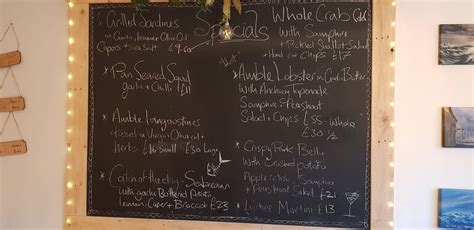 Specials
Grilled Sardines
in Garlic, Lemon + Olive Oil
Capers + Sea Salt £9
* Pan Seared Squid
garlic + Chilli £11
* Amble Langoustines
in Virgin Olive oil +
herbs £16 Small £30 Large
* Catch of the day - Seabream
with garlic Buttered Potato
Lemon, Caper + Broccoli £23
Whole Crab
with Samphire
+ Pickled Shallot Salad
+ Hand cut Chips £17
* Amble Lobster in Garlic Butter
With Anchovy Tapenade
Samphire + Peashoot
Salad + Chips £55 - Whole
£30 ½
* Crispy Pork Belly
With Crushed potato
Apple + Samphire
+ Peashoot Salad £21
Martini £13